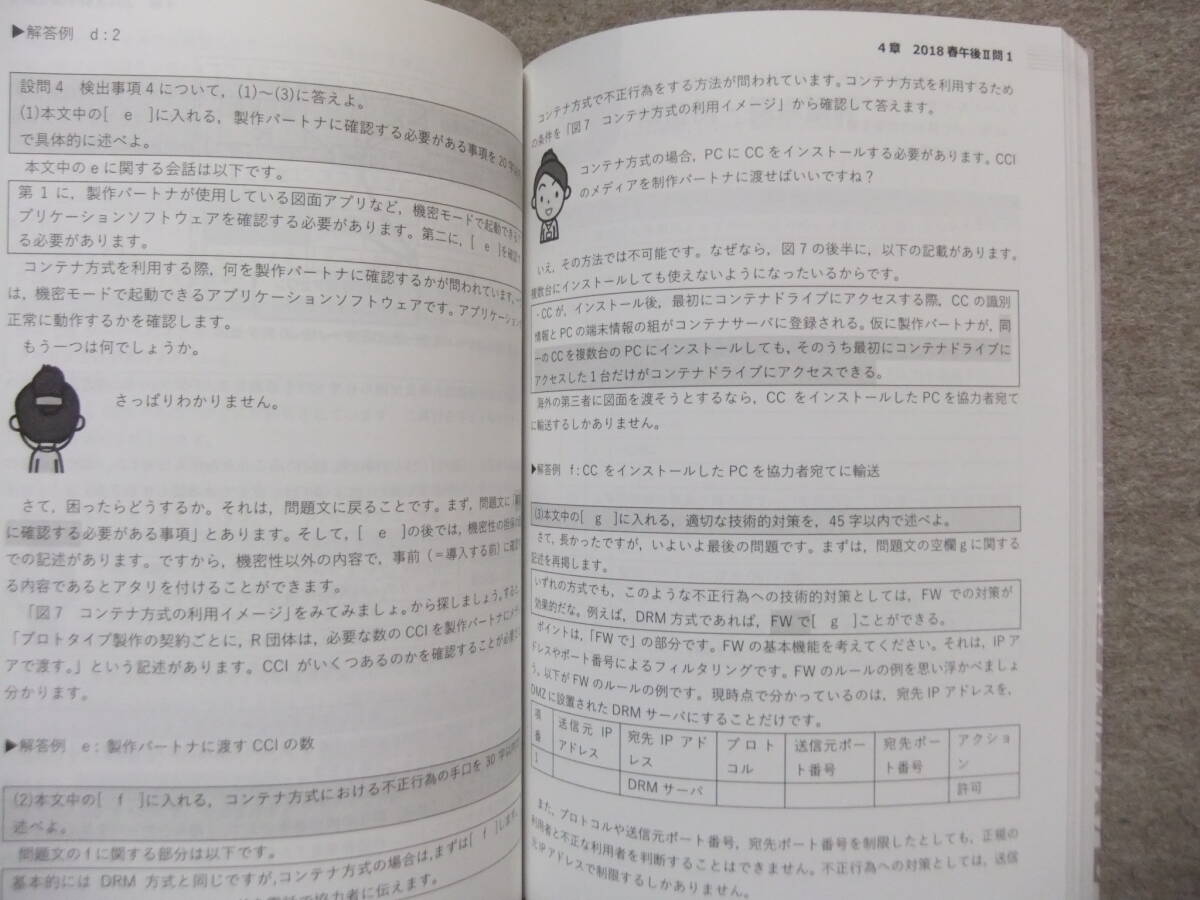 ▶解答例　d：2
設問4　検出事項4について，(1)～(3)に答えよ。
(1)本文中の[　e　]に入れる，製作パートナに確認する必要がある事項を20字
で具体的に述べよ。
本文中のeに関する会話は以下です。
第1に，製作パートナが使用している図面アプリなど，機密モードで起動できる
プリケーションソフトウェアを確認する必要があります。第二に，[　e　]を確認
る必要があります。
コンテナ方式を利用する際，何を製作パートナに確認するかが問われています。
は，機密モードで起動できるアプリケーションソフトウェアです。アプリケーション
正常に動作するかを確認します。
もう一つは何でしょうか。
さっぱりわかりません。
さて，困ったらどうするか。それは，問題文に戻ることです。まず，問題文に「
に確認する必要がある事項」とあります。そして，[　e　]の後では，機密性の
での記述があります。ですから，機密性以外の内容で，事前（＝導入する前）に確認
る内容であるとアタリを付けることができます。
「図7　コンテナ方式の利用イメージ」をみてみましょ。から探しましょう。
「プロトタイプ製作の契約ごとに，R団体は，必要な数のCCIを製作パートナにメディ
アで渡す。」という記述があります。CCIがいくつあるのかを確認することが必要
分かります。
▶解答例　e：製作パートナに渡すCCIの数
(2)本文中の[　f　]に入れる，コンテナ方式における不正行為の手口を30字以内
述べよ。
問題文のfに関する部分は以下です。
基本的にはDRM方式と同じですが，コンテナ方式の場合は，まずは[　f　]します
協力者に伝えます。
4章　2018春午後Ⅱ問1
コンテナ方式で不正行為をする方法が問われています。コンテナ方式を利用するため
の条件を「図7　コンテナ方式の利用イメージ」から確認して答えます。
コンテナ方式の場合，PCにCCをインストールする必要があります。CCI
のメディアを制作パートナに渡せばいいですね？
いえ，その方法では不可能です。なぜなら，図7の後半に，以下の記載があります。
複数台にインストールしても使えないようになったいるからです。
・CCが，インストール後，最初にコンテナドライブにアクセスする際，CCの識別
情報とPCの端末情報の組がコンテナサーバに登録される。仮に製作パートナが，同
一のCCを複数台のPCにインストールしても，そのうち最初にコンテナドライブに
アクセスした1台だけがコンテナドライブにアクセスできる。
海外の第三者に図面を渡そうとするなら，CCをインストールしたPCを協力者宛て
に輸送するしかありません。
▶解答例　f：CCをインストールしたPCを協力者宛てに輸送
(3)本文中の[　g　]に入れる，適切な技術的対策を，45字以内で述べよ。
さて，長かったですが，いよいよ最後の問題です。まずは，問題文の空欄gに関する
記述を再掲します。
いずれの方式でも，このような不正行為への技術的対策としては，FWでの対策が
効果的だな。例えば，DRM方式であれば，FWで[　g　]ことができる。
ポイントは，「FWで」の部分です。FWの基本機能を考えてください。それは，IPア
ドレスやポート番号によるフィルタリングです。FWのルールの例を思い浮かべましょ
う。以下がFWのルールの例です。現時点で分かっているのは，宛先IPアドレスを，
DMZに設置されたDRMサーバにすることだけです。
項番　送信元IPアドレス　宛先IPアドレス　プロトコル　送信元ポート番号　宛先ポート番号　アクション
1　DRMサーバ　許可
また，プロトコルや送信元ポート番号，宛先ポート番号を制限したとしても，正規の
利用者と不正な利用者を判断することはできません。不正行為への対策としては，送信
元IPアドレスで制限するしかありません。